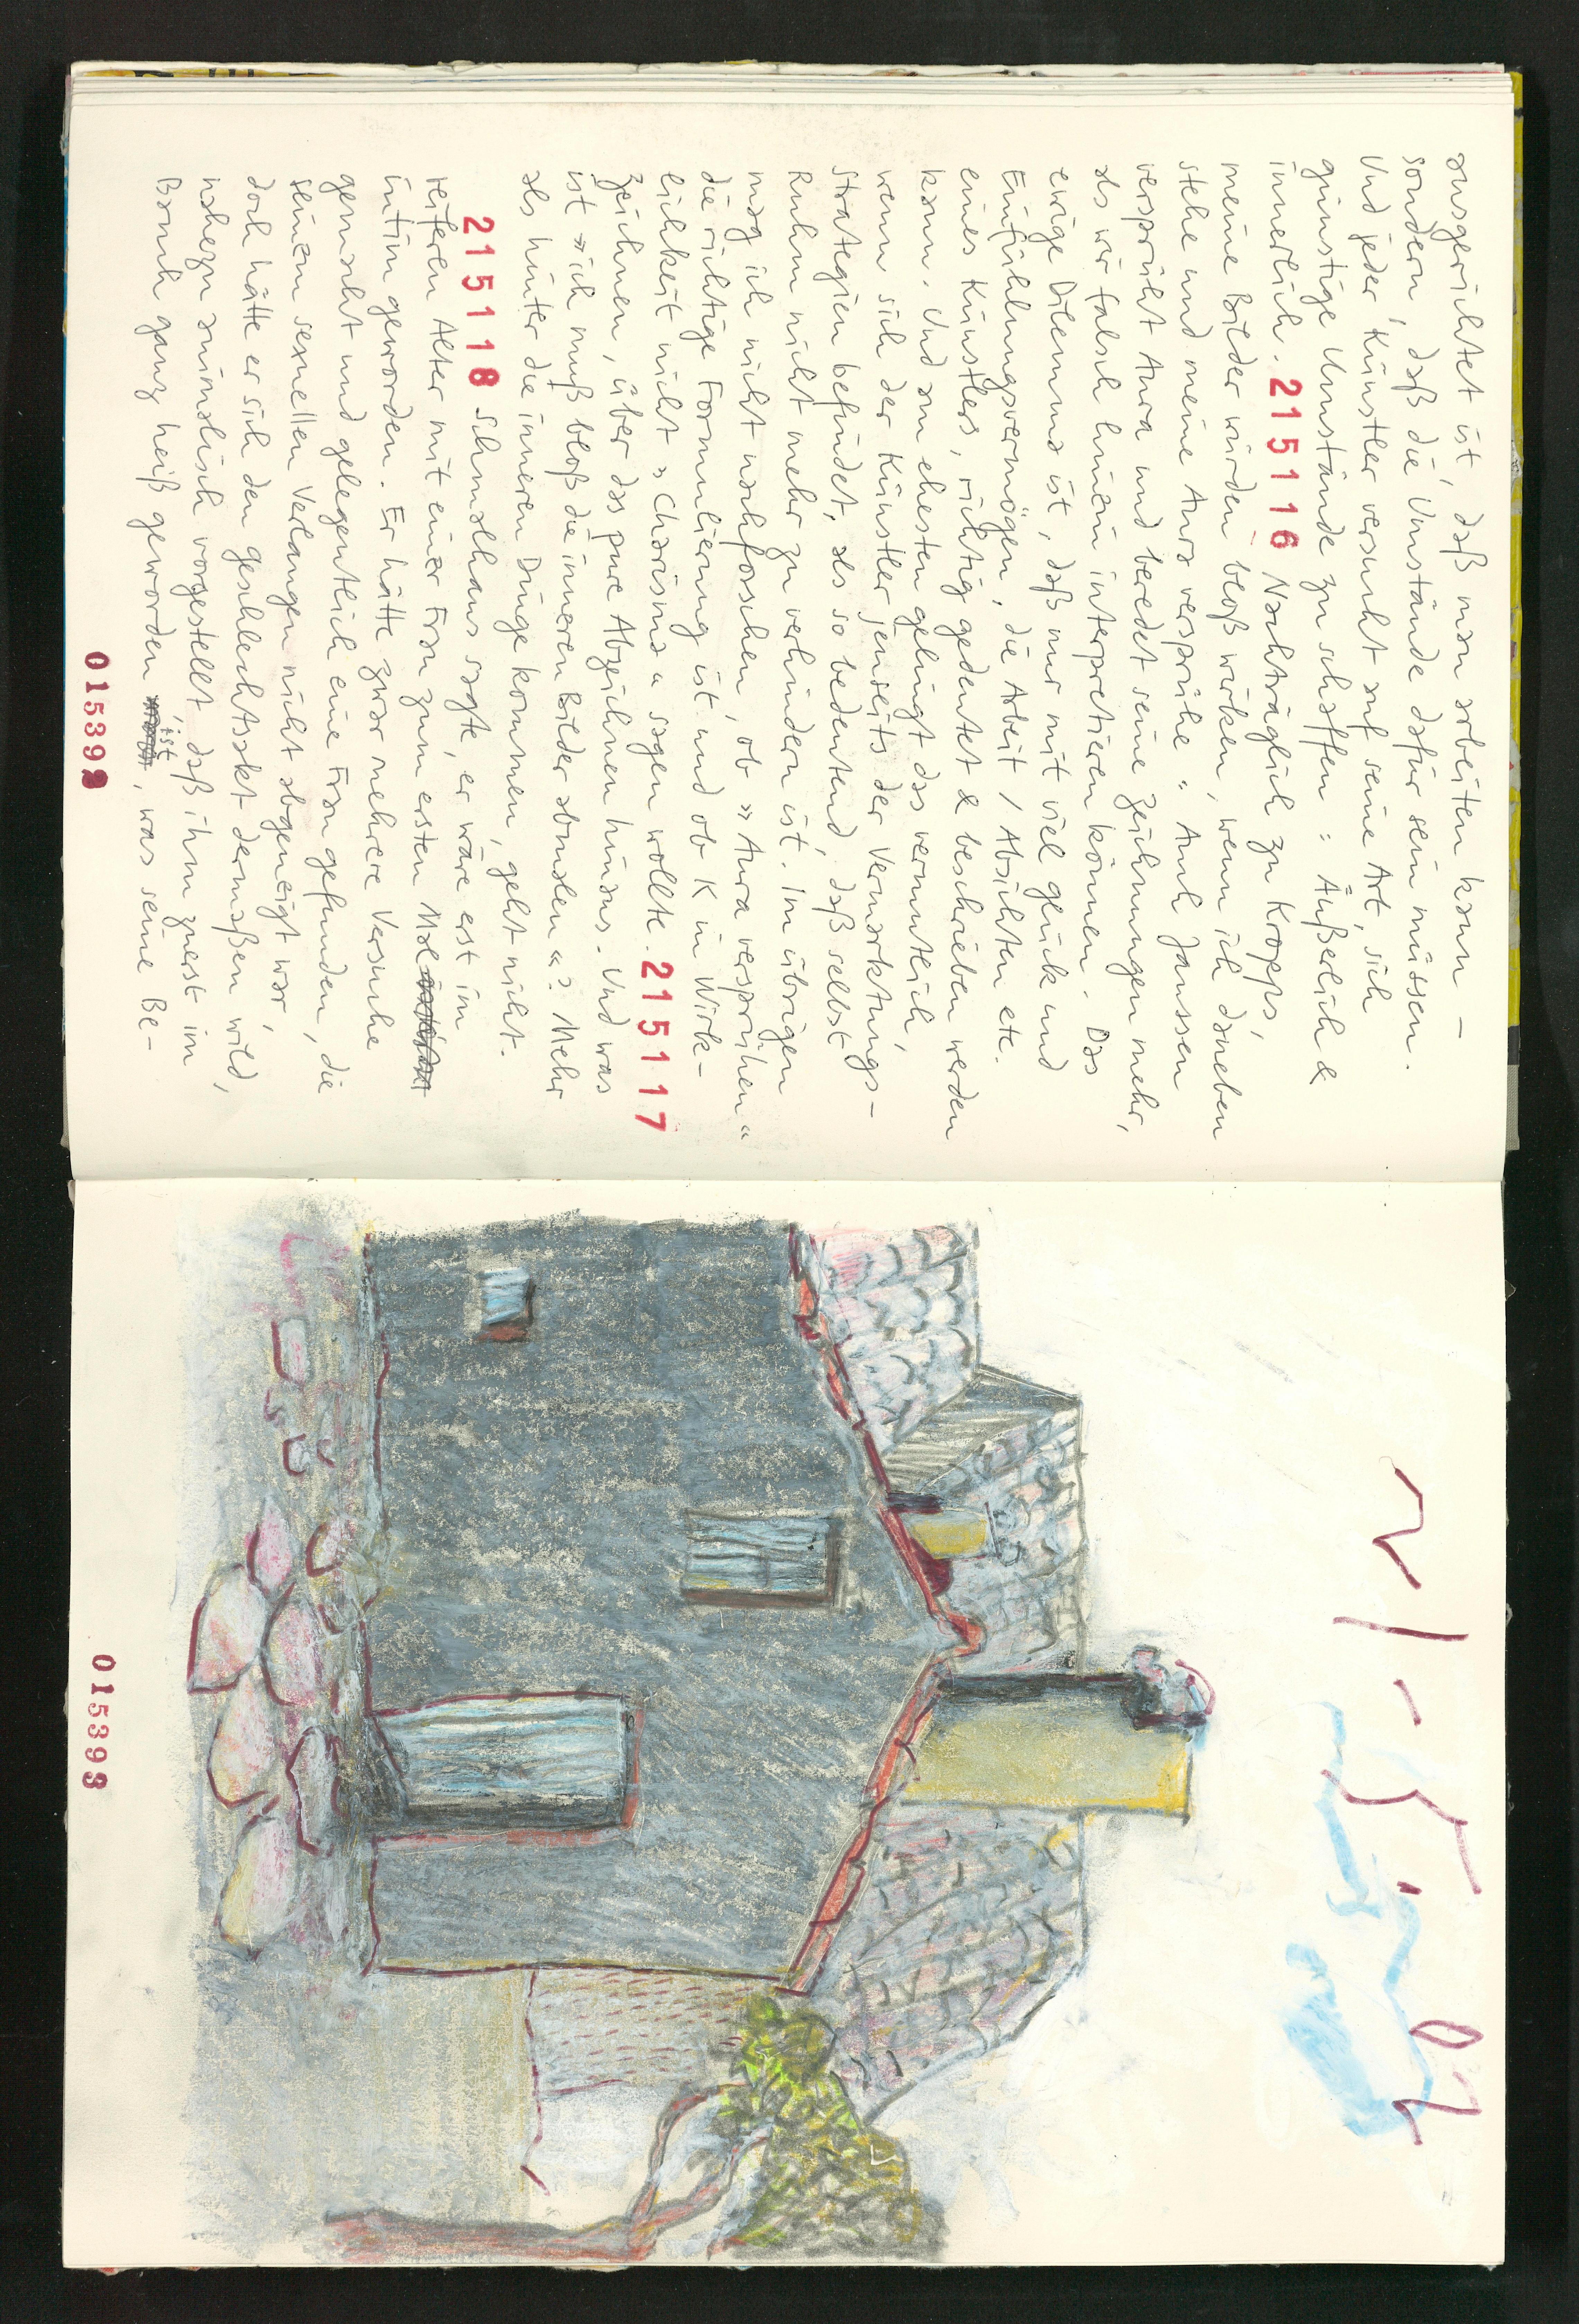 ausgerichtet ist, daß man arbeiten kann –
sondern, daß die Umstände dafür sein müssen.
Und jeder Künstler versucht auf seine Art, sich
günstige Umstände zu schaffen: Äußerlich &
innerlich. 215116 Nachträglich zu Kropps,
meine Bilder würden bloß wirken, wenn ich daneben
stehe und meine Aura versprühe: Auch Janssen
versprüht Aura und beredet seine Zeichnungen mehr,
als wir falsch hinein interpretieren können. Das
ewige Dilemma ist, daß nur mit viel Glück und
Einfühlungsvermögen, die Arbeit / Absichten etc.
eines Künstlers, richtig gedeutet & beschrieben werden
kann. Und am ehesten gelingt das vermutlich,
wenn sich der Künstler jenseits der Vermarktungs-
strategien befindet, als so bedeutend, daß selbst
Ruhm nicht mehr zu verhindern ist. Im übrigen
mag ich nicht nachforschen, ob »Aura versprühen«
die richtige Formulierung ist und ob K in Wirk-
lichkeit nicht »Charisma« sagen wollte. 215117
Zeichnen, über das pure Abzeichnen hinaus. Und was
ist »ich muß bloß die inneren Bilder abmalen«? Mehr
als hinter die inneren Dinge kommen, geht nicht.
215118 Schmalhans sagte, er wäre erst im
reiferen Alter mit einer Frau zum ersten Mal
intim geworden. Er hätte zwar mehrere Versuche
gemacht und gelegentlich eine Frau gefunden, die
seinem sexuellen Verlangen nicht abgeneigt war,
doch hätte er sich den Geschlechtsakt dermaßen wild,
nahezu animalisch vorgestellt, daß ihm zuerst im
Bauch ganz heiß geworden ist, was seine Be-
015392
21-5.02
015393